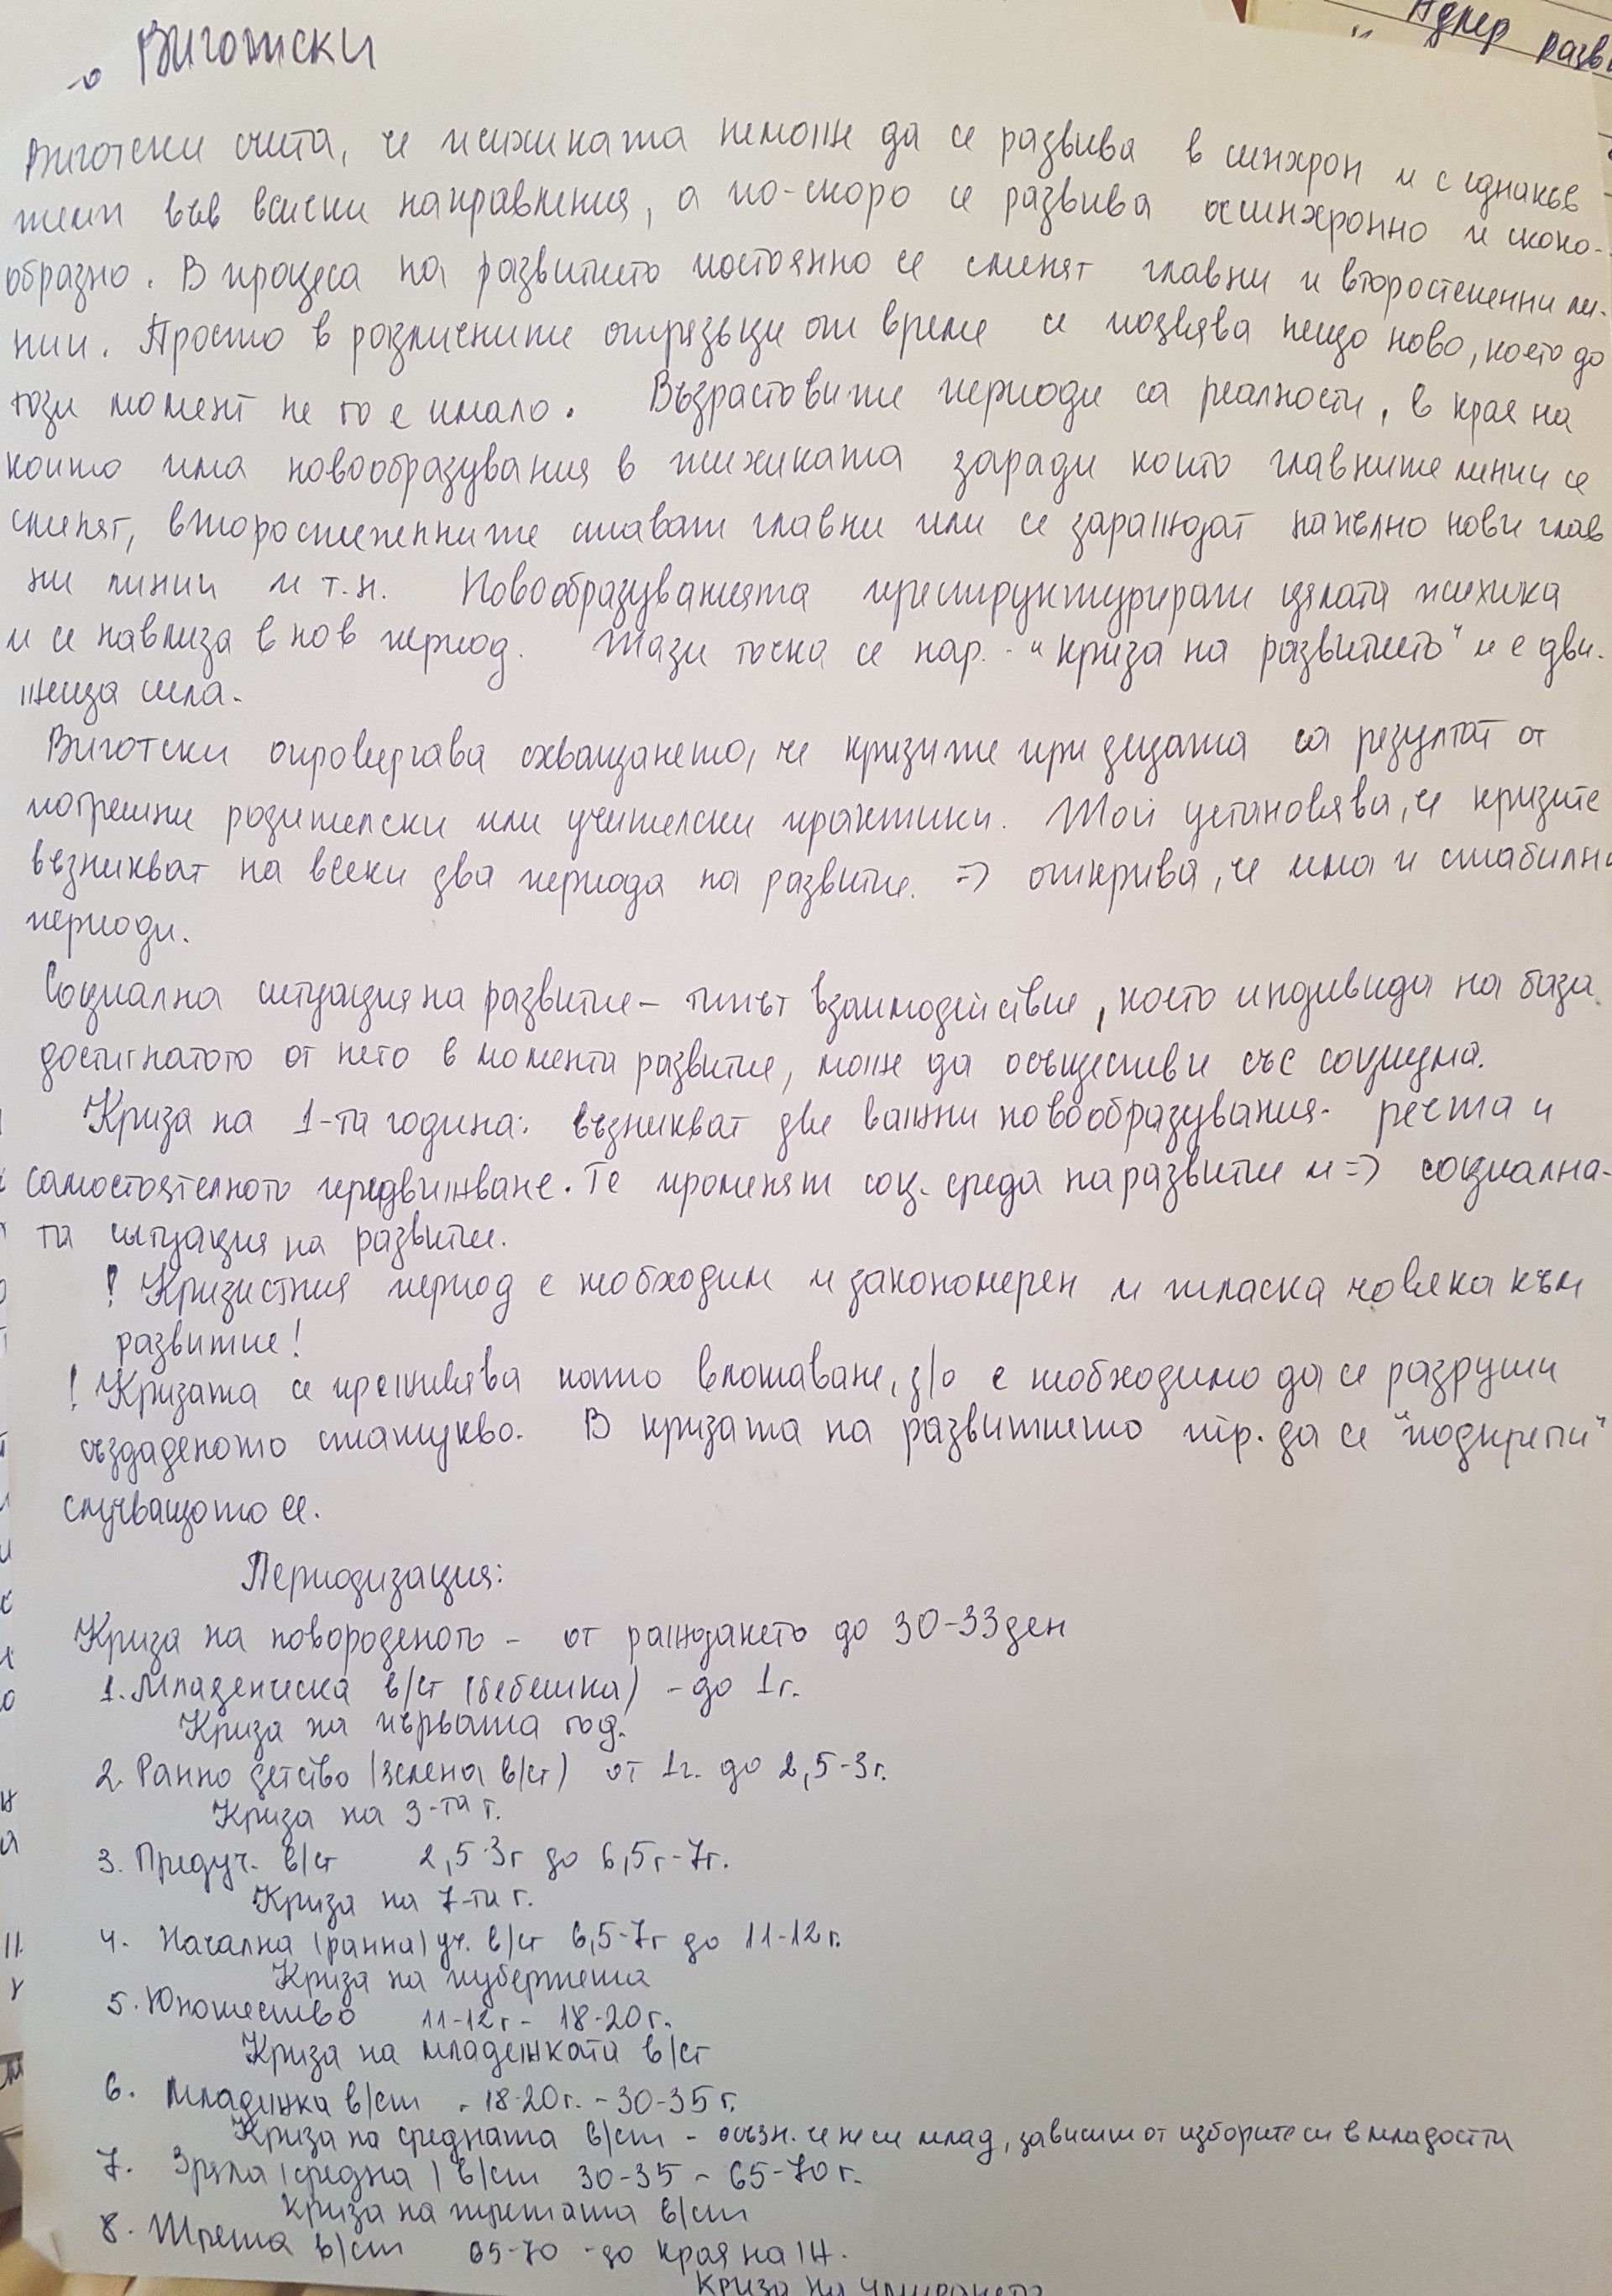 Адлер разв
→ Виготски
Виготски счита, че психиката неможе да се развива в синхрон и с еднакъв
темп във всички направления, а по-скоро се развива асинхронно и скоко-
образно. В процеса на развитието постоянно се сменят главни и второстепенни ли-
нии. Просто в различните отрязъци от време се появява нещо ново, което до
този момент не го е имало. Възрастовите периоди са реалности, в края на
които има новообразувания в психиката заради които главните линии се
сменят, второстепенните стават главни или се зараждат напълно нови глав
ни линии и т.н. Новообразуванията преструктурират цялата психика
и се навлиза в нов период. Тази точка се нар. - "криза на развитието" и е дви-
жеща сила.
Виготски опровергава схващането, че кризите при децата са резултат от
погрешни родителски или учителски практики. Той установява, че кризите
възникват на всеки два периода на развитие. => открива, че има и стабилни
периоди.
Социална ситуация на развитие – типът взаимодействие, което индивида на база
достигнатото от него в момента развитие, може да осъществи със социума.
Криза на 1-та година: възникват две важни новообразувания - речта и
самостоятелното придвижване. Те променят соц. среда на развитие и => социална-
та ситуация на развитие.
! Кризистния период е необходим и закономерен и тласка човека към
развитие!
! Кризата се преживява като влошаване, з/о е необходимо да се разруши
създаденото статукво. В кризата на развитието тр. да се "подкрепи"
случващото се.
Периодизация:
Криза на новороденото - от раждането до 30-33 ден
1. Младенческа в/ст (бебешка) - до 1г.
Криза на първата год.
2. Ранно детство (зелена в/ст) от 1г. до 2,5-3г.
Криза на 3-та г.
3. Предуч. в/ст 2,5-3г до 6,5г-7г.
Криза на 7-та г.
4. Начална (ранна) уч. в/ст 6,5-7г до 11-12г.
Криза на пубертета
5. Юношество 11-12г - 18-20г.
Криза на младежката в/ст
6. Младежка в/ст - 18-20г. - 30-35г.
Криза на средната в/ст - осъзн. че не си млад, зависим от изборите си в младостта
7. Зряла (средна) в/ст 30-35 - 65-70г.
Криза на третата в/ст
8. Трета в/ст 65-70 - до края на Ж.
Криза на умирането